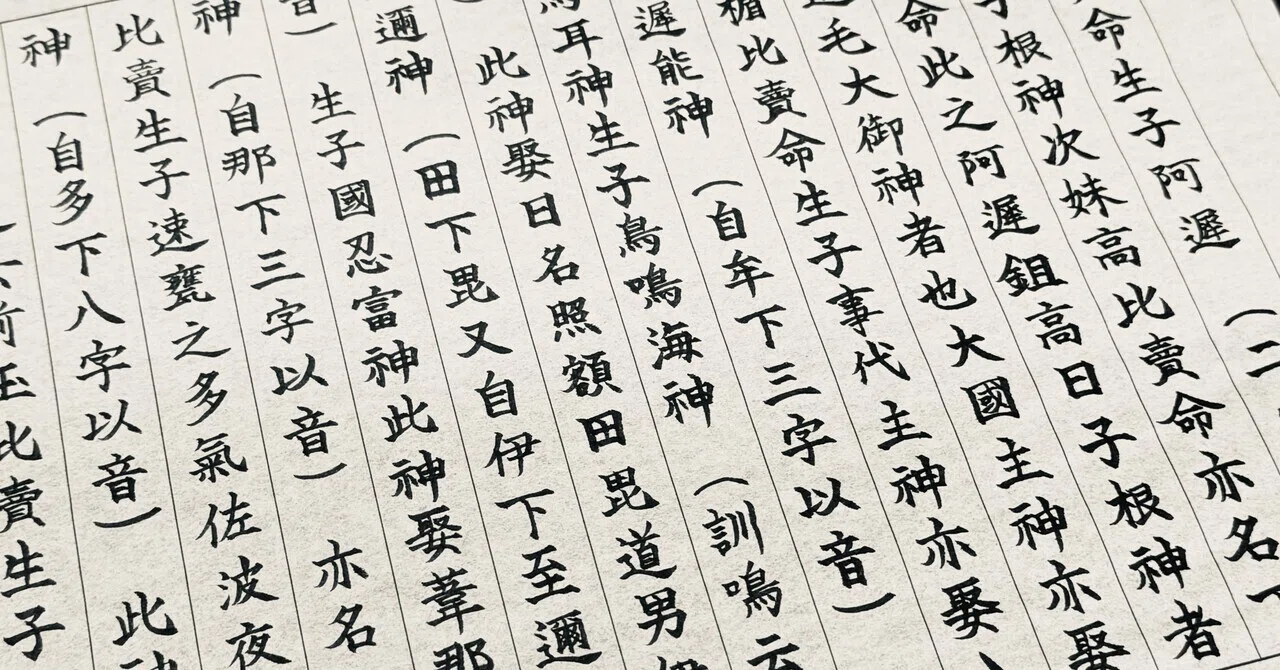 命生子阿遲（二
子根神次妹高比賣命亦名下
命此之阿遲鉏高日子根神者
毛大御神者也大國主神亦娶
楯比賣命生子事代主神亦娶
遲能神（自牟下三字以音）
鳥耳神生子鳥鳴海神（訓鳴云
此神娶日名照額田毘道男
邇神（田下毘又自伊下至邇
音）生子國忍富神此神娶葦那
神（自那下三字以音）亦名
比賣生子速甕之多氣佐波夜
神（自多下八字以音）此神
前玉比賣生子